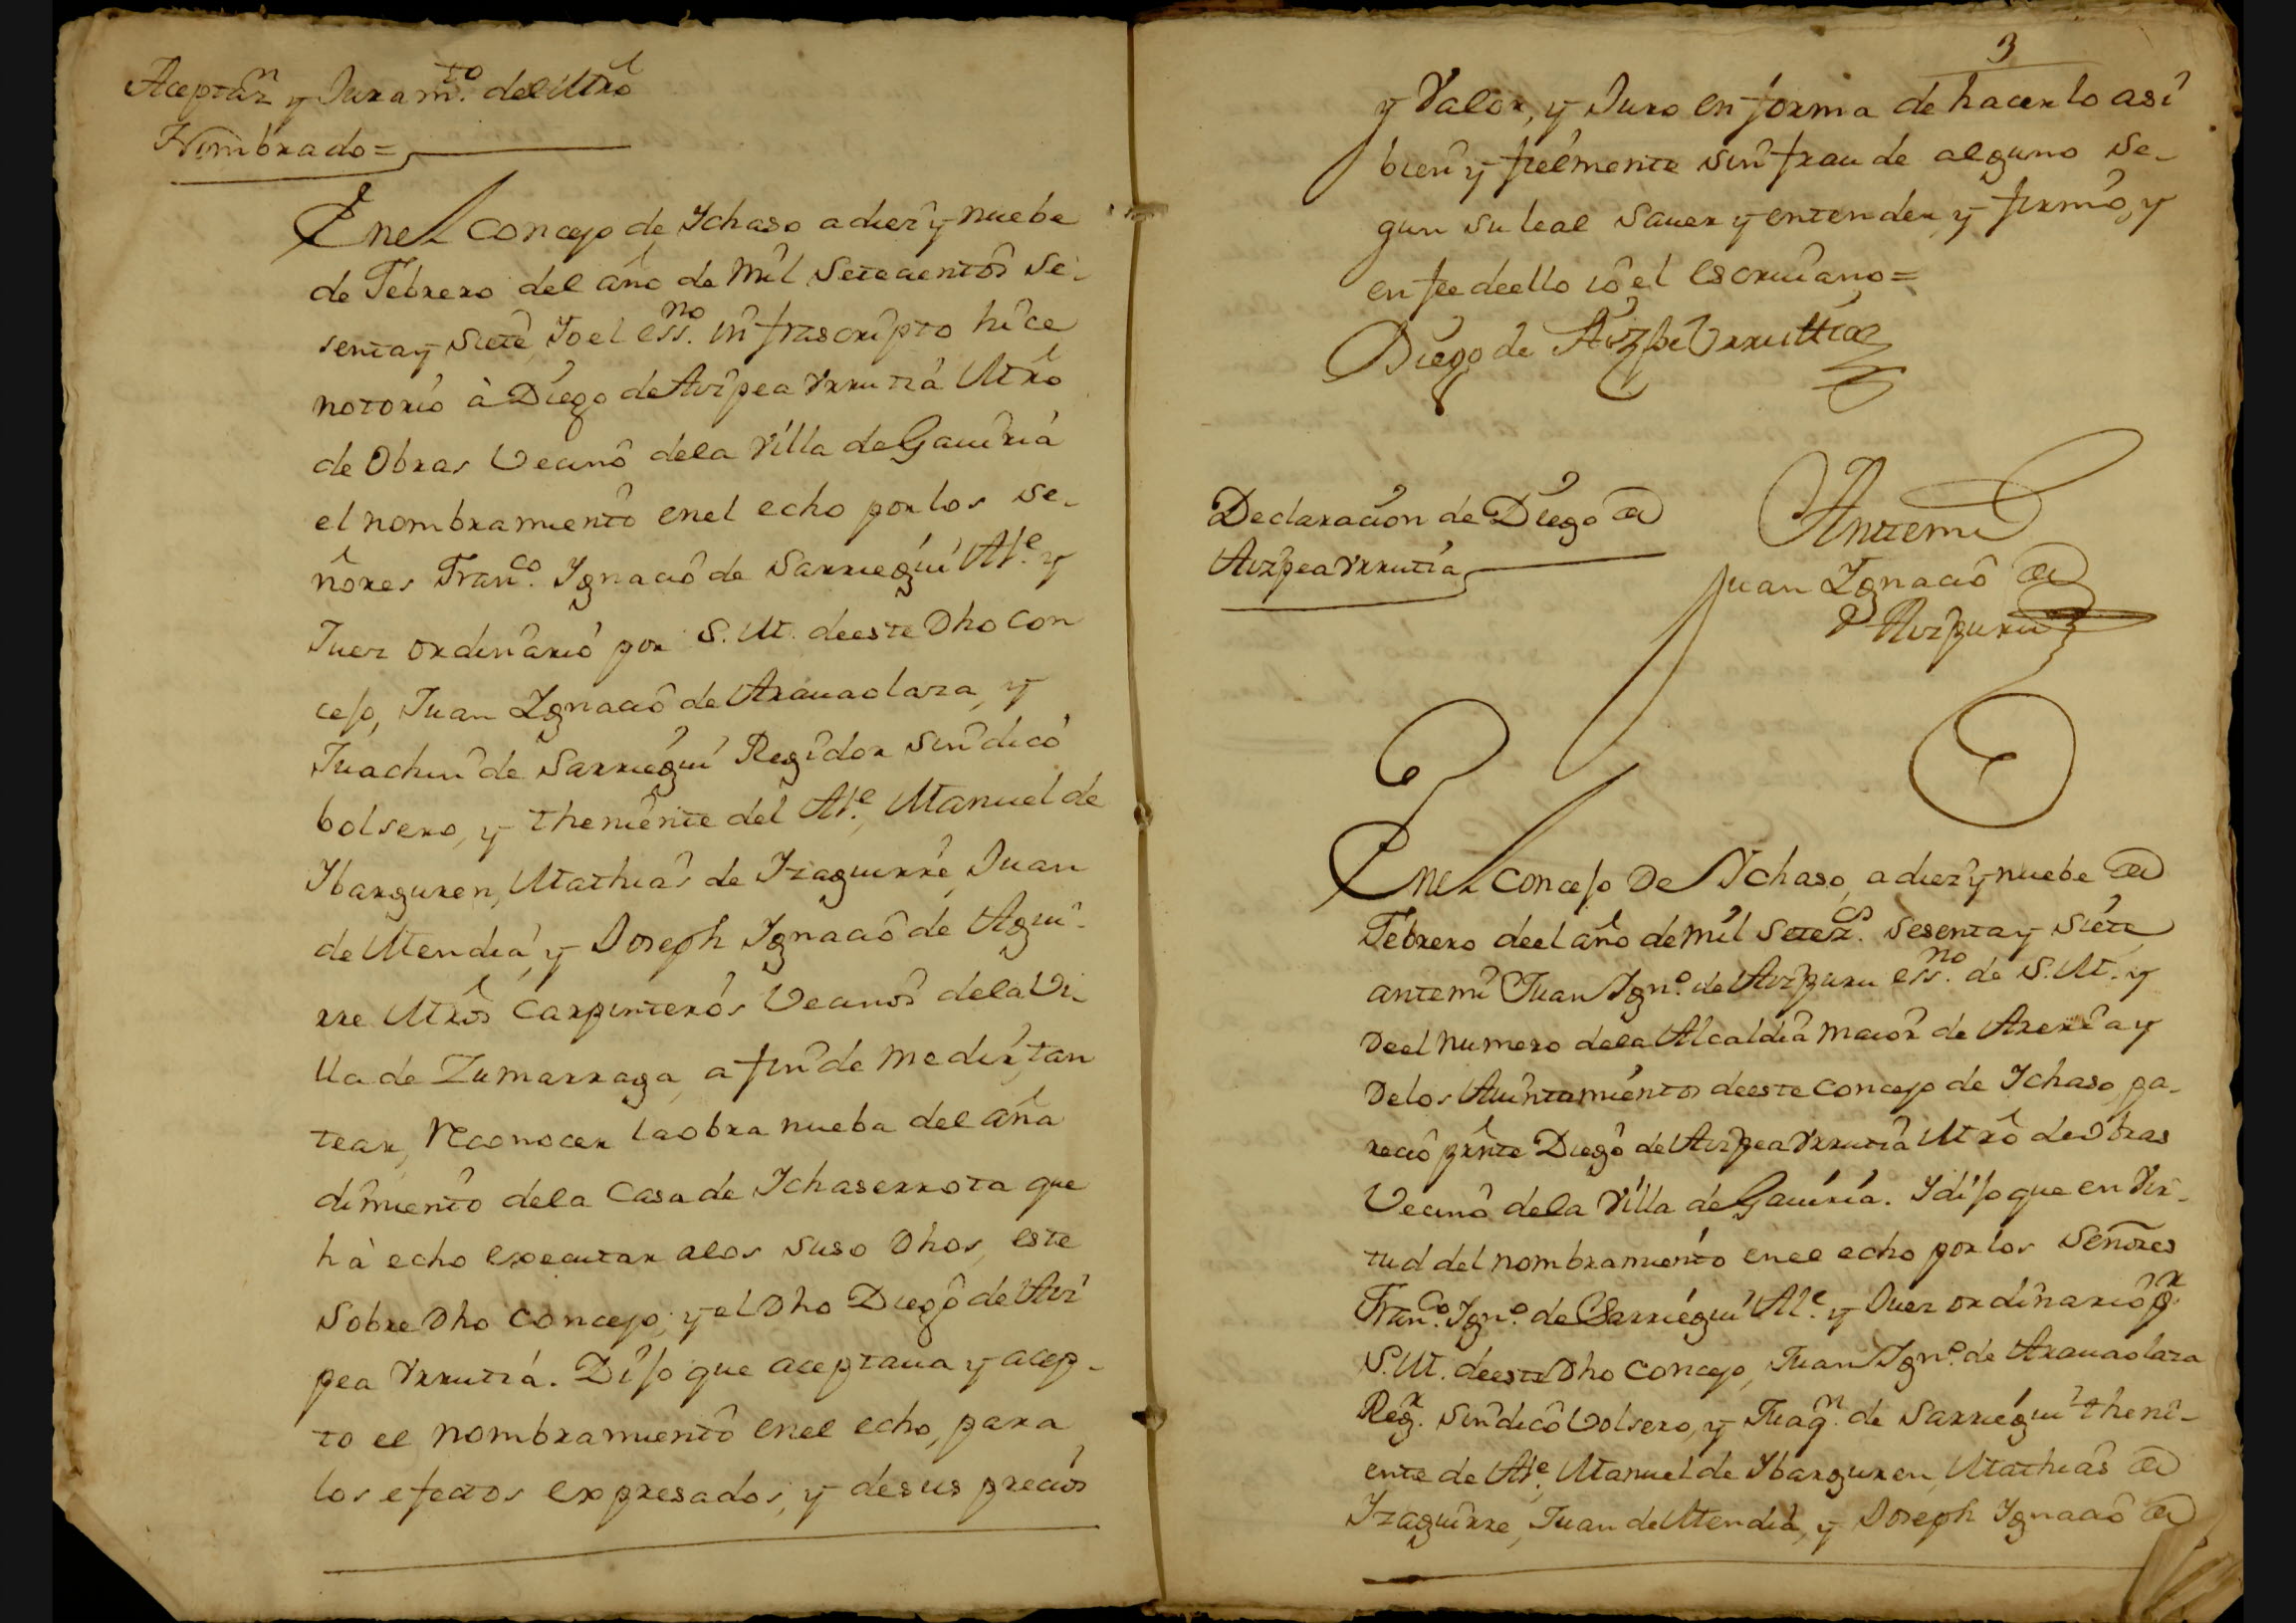 Aceptan y Juramto. del Mro
Nombrado=
En el Concejo de Ychaso a diez y nuebe
de Febrero del año de Mil Setecientos Se-
senta y Siete, Yo el essno. infrascripto hice
notorio à Diego de Aizpea Vrrutia Mro
de Obras Vecino de la Villa de Gauiria
el nombramiento en el echo por los Se-
ñores Franco. Ygnacio de Sarriegui Ale. y
Juez ordinario por S. M. de este Dho Con
cejo, Juan Ygnacio de Arauaolaza, y
Juachin de Sarriegui Regidor Sindico
bolsero, y theniente del Ale., Manuel de
Ybarguren, Mathias de Yzaguirre, Juan
de Mendia, y Joseph Ygnacio de Agui-
rre Mros Carpinteros Vecinos de la Vi-
lla de Zumarraga, a fin de medir, tan
tear, Reconocer la obra nueba del aña
dimiento de la Casa de Ychaserrota que
hà echo executar a los suso Dhos, este
Sobre Dho Concejo; y el Dho Diego de Aiz
pea Vrrutia. Dijo que aceptaua y acep-
to el nombramiento en el echo, para
los efectos expresados, y de sus precios
3
y Valor, y Juro en forma de hacerlo asi
bien y fielmente sin fraude alguno Se-
gun su leal Sauer y entender, y firmò, y
en fee de ello io el escriuano=
Diego de Aizpe Vrruttia
Declaracion de Diego de
Aizpea Vrrutia
Antemi
Juan Ygnacio de
Aizpuru
En el Concejo De Ychaso, a diez y nuebe de
Febrero de el año de mil Setezos. Sesenta y Siete
antemi Juan Igno. de Aizpuru essno. de S. M. y
Del numero de la Alcaldia maior de Areria y
De los Aiuntamientos de este Concejo de Ychaso, pa-
reciò prnte Diego de Aizpea Vrrutia Mro de Obras
Vecino de la Villa de Gauiria. Y dijo que en Vir-
tud del nombramiento en el echo por los Señores
Franco. Igno. de Sarriegui Ale. y Juez ordinario pr.
S. M. de este Dho Concejo, Juan Igno. de Arauaolaza
Regr. Sindico Volsero, y Juaqn. de Sarriegui theni-
ente de Ale., Manuel de Ybarguren, Mathias de
Yzaguirre, Juan de Mendia, y Joseph Ygnacio de